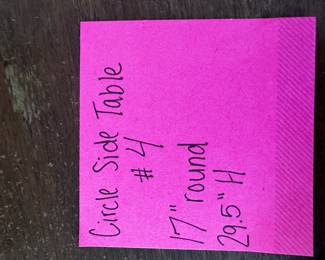 Circle Side Table
# 4
17" round
29.5" H